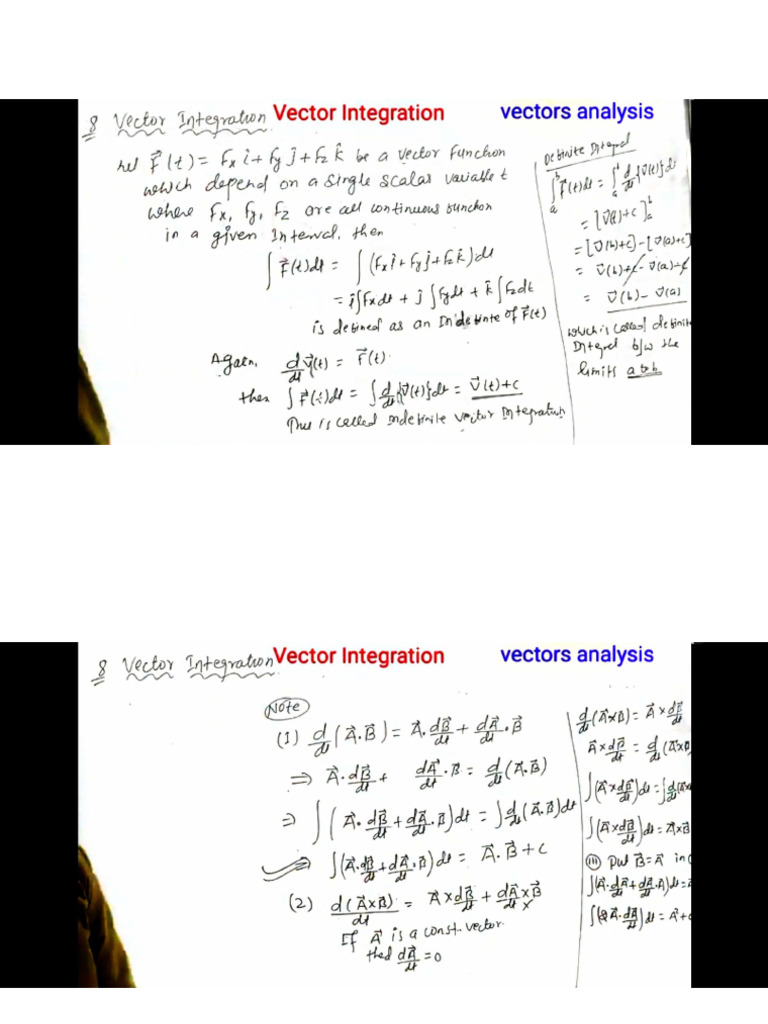 8 Vector Integration Vector Integration vectors analysis
let F⃗(t) = Fx î + Fy ĵ + Fz k̂ be a vector function
which depend on a single scalar variable t
where Fx, Fy, Fz are all continuous function
in a given Interval, then
∫ F⃗(t)dt = ∫ (Fx î + Fy ĵ + Fz k̂) dt
= î∫Fxdt + ĵ ∫Fydt + k̂ ∫Fzdt
is defined as an Indefinte of F⃗(t)
Again, d/dt V⃗(t) = F⃗(t)
then ∫F⃗(t)dt = ∫ d/dt{V⃗(t)}dt = V⃗(t)+c
This is called indefinite vector Integration
Definite Integral
∫ₐᵇ F⃗(t)dt = ∫ₐᵇ d/dt{V⃗(t)}dt
= [V⃗(t)+c]ₐᵇ
= [V⃗(b)+c] - [V⃗(a)+c]
= V⃗(b)+c - V⃗(a) - c
= V⃗(b) - V⃗(a)
which is called definite
Integral b/w the
limits a to b
8 Vector Integration Vector Integration vectors analysis
Note
(1) d/dt (A⃗.B⃗) = A⃗.dB⃗/dt + dA⃗/dt.B⃗
⇒ A⃗.dB⃗/dt + dA⃗/dt.B⃗ = d/dt (A⃗.B⃗)
⇒ ∫(A⃗.dB⃗/dt + dA⃗/dt.B⃗)dt = ∫d/dt(A⃗.B⃗)dt
⇒ ∫(A⃗.dB⃗/dt + dA⃗/dt.B⃗)dt = A⃗.B⃗ + c
(2) d(A⃗×B⃗)/dt = A⃗×dB⃗/dt + dA⃗/dt×B⃗
If A⃗ is a const. vector
then dA⃗/dt = 0
d/dt(A⃗×B⃗) = A⃗×dB⃗/dt
A⃗×dB⃗/dt = d/dt(A⃗×B
∫(A⃗×dB⃗/dt)dt = ∫d/dt(A×
∫(A⃗×dB⃗/dt)dt = A⃗×B
(III) Put B⃗=A⃗ in
∫(A⃗.dA⃗/dt + dA⃗/dt.A⃗)dt =
∫(2A⃗.dA⃗/dt)dt = A⃗ +